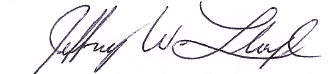 Jeffrey W Lloyd